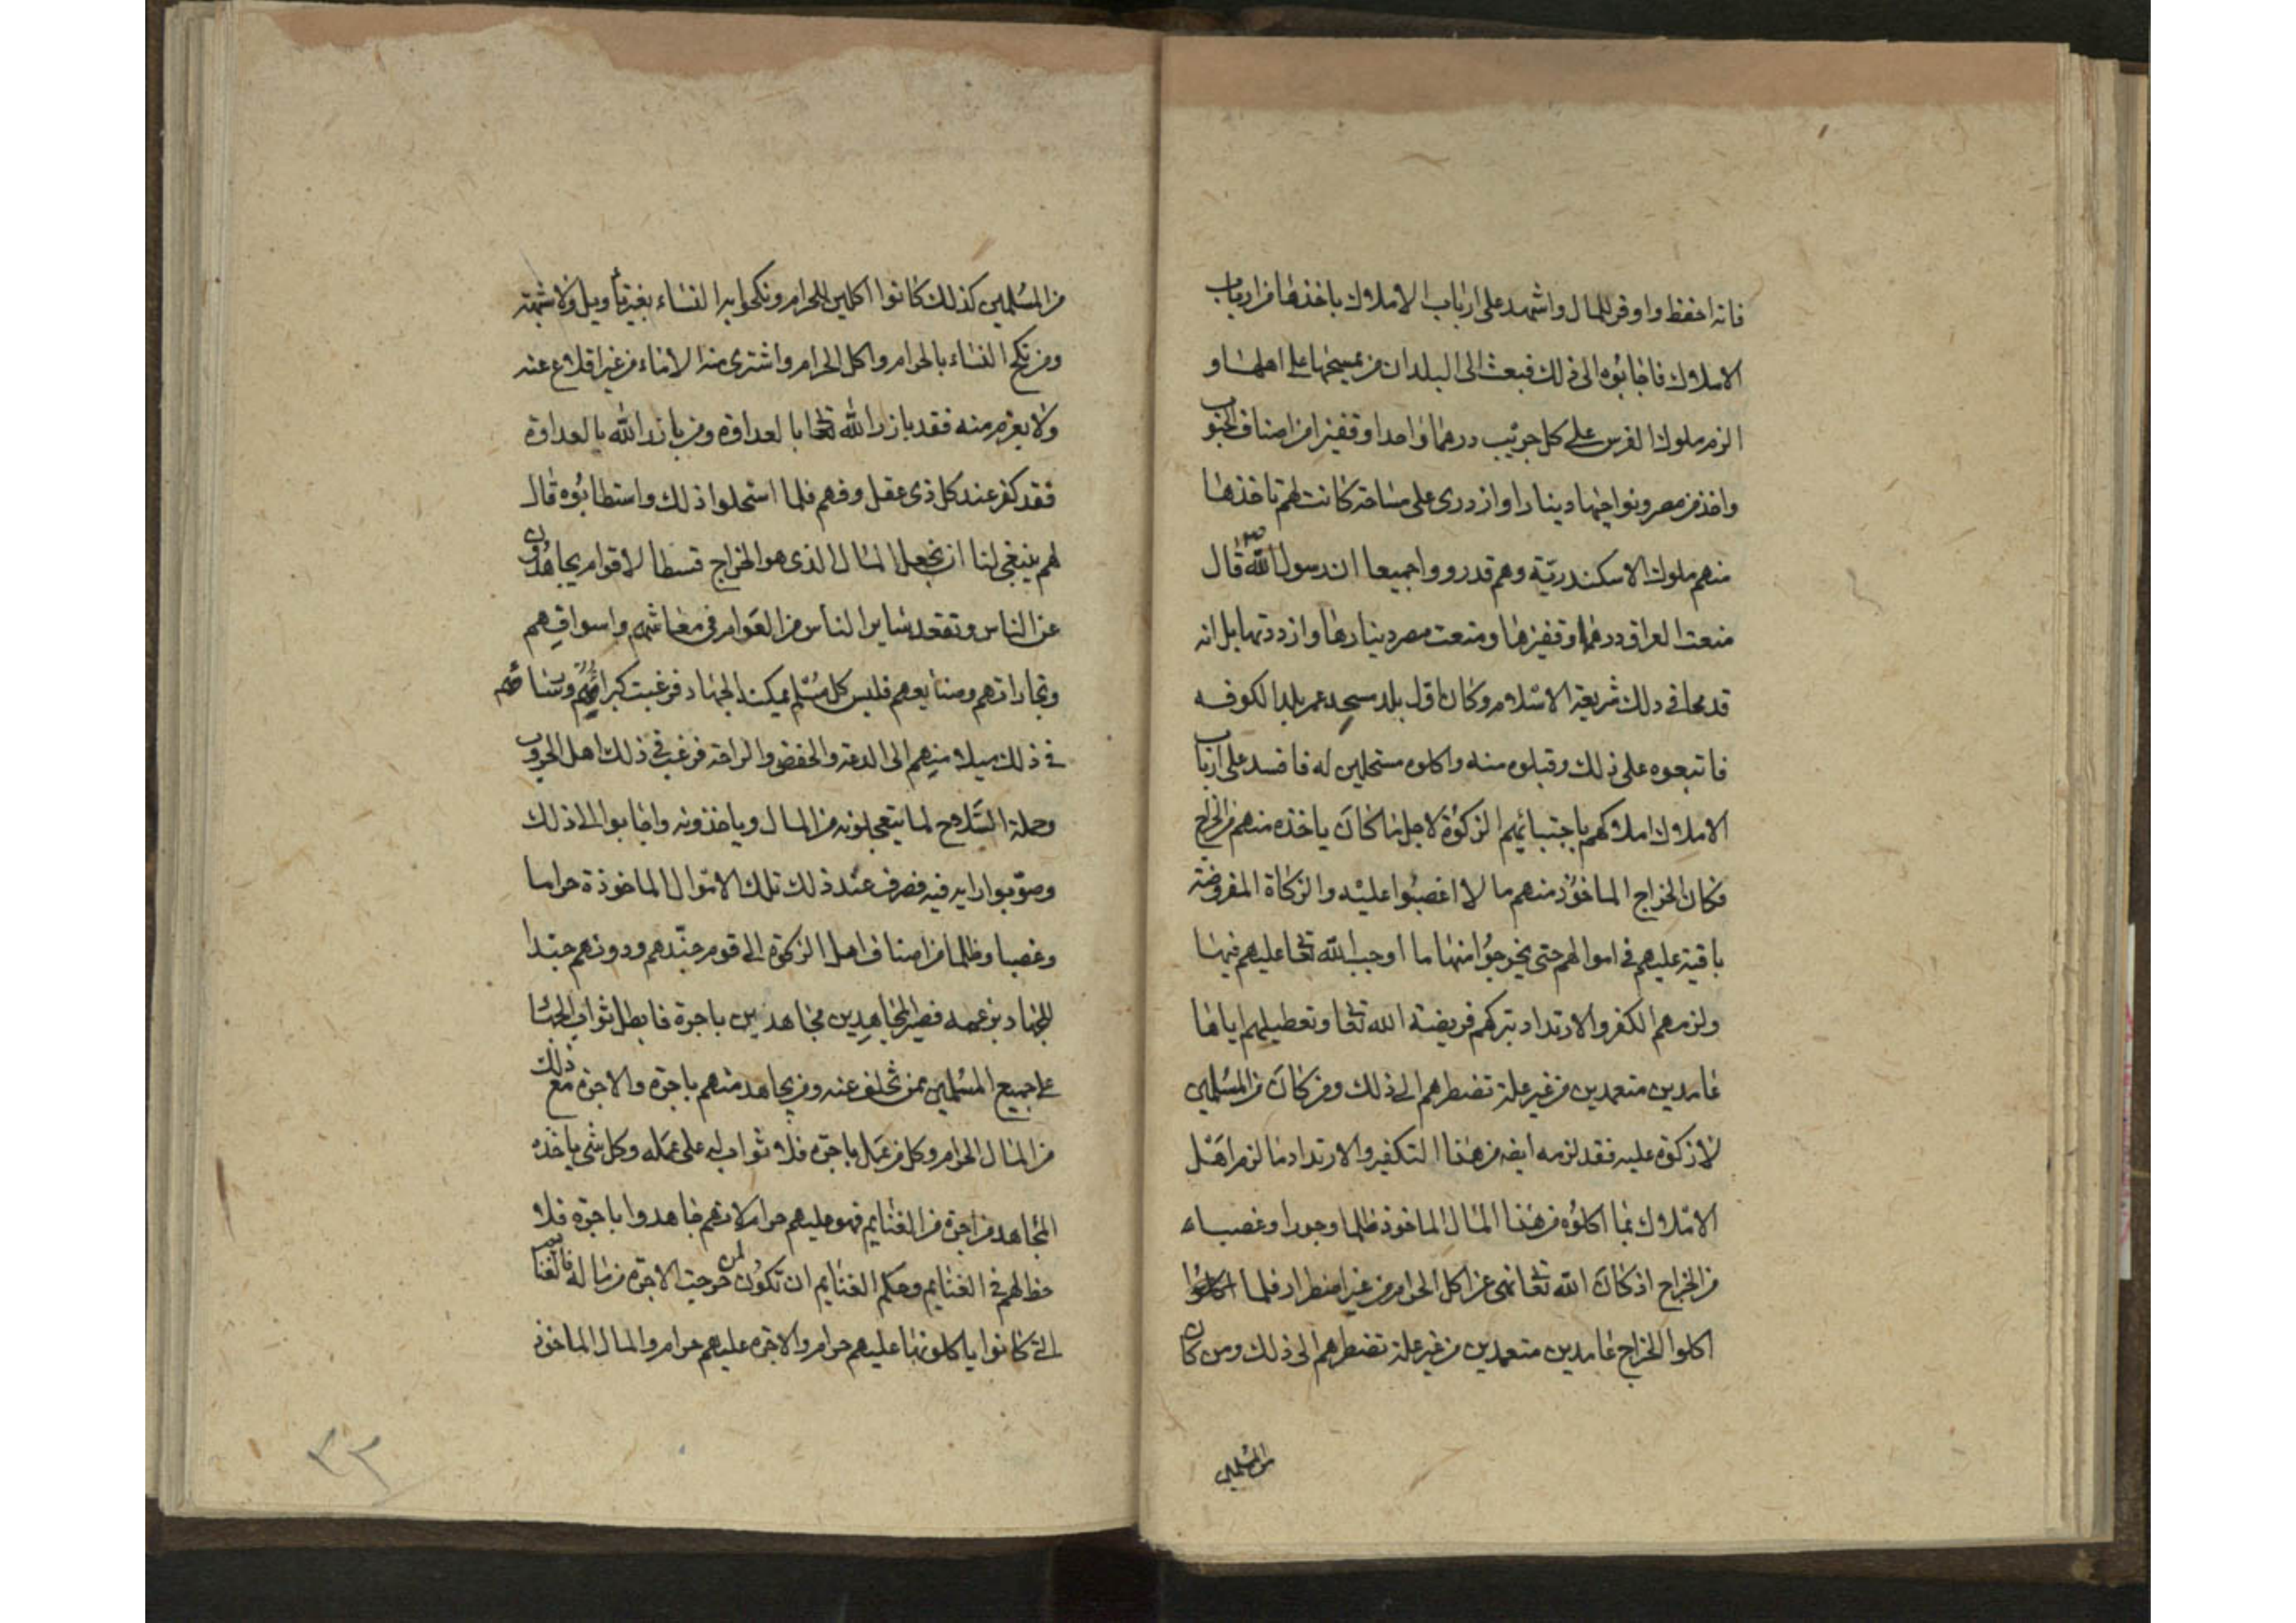 فانه احفظ واوفر للمال واشهد على ارباب الاملاك باخذها من ارباب
الاملاك فاجابوه الى ذلك فبعث الى البلدان من يمسحها على اهلها و
الزم ملوك الفرس على كل جريب درهما واحدا وقفيزا من اصناف الحبوب
واخذ من مصر ونواحيها دينارا واردب على مساحة كانت لهم تاخذها
منهم ملوك الاسكندرية وهم قد رووا جميعا ان رسول الله ص قال
منعت العراق درهمها وقفيزها ومنعت مصر دينارها وازددتها بل انه
قد محا في ذلك شريعة الاسلام وكان اول بلد مسحه عمر بلد الكوفه
فاتبعوه على ذلك وقبلوه منه واكلوه مستحلين له فافسد على ارباب
الاملاك املاكهم باجتبائهم الزكوة لاجل ما كان ياخذه منهم من الخراج
فكان الخراج الماخوذ منهم مالا اغصبوا عليه والزكاة المفروضة
باقية عليهم في اموالهم حتى يخرجوا منها ما اوجب الله تعا عليهم فيها
ولزمهم الكفر والارتداد بتركهم فريضة الله تعا وتعطيلهم اياها
عامدين متعمدين من غير علة تضطرهم الى ذلك ومن كان من المسلمين
لا زكوة عليه فقد لزمه ايضه من هذا التكفير والارتداد ما لزم اهل
الاملاك بما اكلوه من هذا المال الماخوذ ظلما وجورا وغصباء
من الخراج اذ كان الله تعا نهى عن اكل الحرام من غير اضطرار فلما
اكلوا الخراج عامدين متعمدين من غير علة تضطرهم الى ذلك ومن كان
من المسلمين
من المسلمين كذلك كانوا اكلين للحرام ونكحوا به النساء بغير تأويل ولا شبهة
ومن نكح النساء بالحرام واكل الحرام واشترى منه الاماء من غير اقلاع عنه
ولا بعزم منه فقد بارز الله تعا بالعداوة ومن بارز الله بالعداوة
فقد كفر عند كل ذى عقل وفهم فلما استحلوا ذلك واستطابوه قال
لهم ينبغي لنا ان نجعل المال الذى هو الخراج قسطا لاقوام يجاهدون
عن الناس وتقعد ساير الناس من العوام في معاشهم واسواقهم
وتجاراتهم وصنايعهم فليس كل مسلم يمكنه الجهاد فرغبت كبرائهم ورؤساؤهم
في ذلك ميلا منهم الى الدعة والخفض والراحة فرغب في ذلك اهل الحروب
وحملة السلاح لما يتعجلونه من المال وياخذونه واجابوا الى ذلك
وصوّبوا رايه فيه فصرف عند ذلك تلك الاموال الماخوذة حراما
وغصبا وظلما من اصناف اهل الزكوة الى قوم جنّدهم ودونهم جندا
للجهاد بزعمه فصير المجاهدين مجاهدين باجرة فابطل ثواب الجهاد
على جميع المسلمين ممن تخلف عنه ومن يجاهد منهم باجرة والاجرة مع ذلك
من المال الحرام وكل من عمل باجرة فلا ثواب له على عمله وكل شى ياخذه
المجاهد من اجرة من الغنايم فهو عليهم حرام لانهم جاهدوا باجرة فلا
حظ لهم في الغنايم وحكم الغنايم ان تكون لمن خرجت الاجرة من ماله فالغنايم
التى كانوا ياكلونها عليهم حرام والاجرة عليهم حرام والمال الماخوذ
٣٢